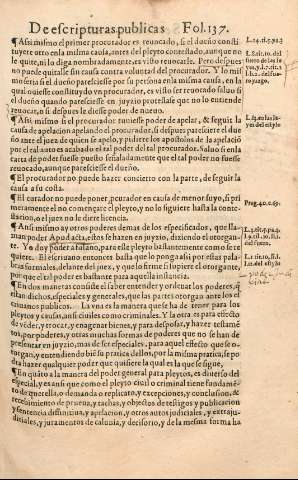 De escripturas publicas   Fol. 137.
¶ Assi mismo el primer procurador es reuocado, si el dueño consti
tuyere otro en la misma causa, antes del pleyto contestado, aunque no
le quite, ni lo diga nombradamente, es visto reuocarle. Pero despues
no puede quitalle sin causa contra voluntad del procurador. Y lo mis
mo seria si el dueño paresciesse por su persona en la misma causa, en la
qual ouiesse constituydo vn procurador, es visto ser reuocado saluo si
el dueño quando paresciesse en juyzio protestasse que no lo entiende
reuocar, o si despues le diesse poder de nueuo.
¶ Assi mismo si el procurador tuuiesse poder de apelar, & seguir la
causa de apelacion apelando el procurador, si despues paresciere el due
ño ante el juez de quien se apelo, y pidiere los apostolos de la apelació
por el tal auto es acabado el tal poder del tal procurador. Saluo si en la
carta de poder fuesse puesto señaladamente que el tal poder no fuesse
reuocado, aunque paresciesse el dueño.
¶ El procurador no puede hazer concierto con la parte, de seguir la
causa a su costa.
¶ El curador no puede poner, curador en causa de menor suyo, si pri
meramente el no començare el pleyto, y no lo siguiere hasta la conte
stacion, o el juez no le diere licencia.
¶ Assi mismo ay otros poderes demas de los especificados, que lla-
man poder Apudacta, estos se hazen en juyzio, diziendo el otorgan-
te. Yo doy poder a fulano, para este pleyto bastantemente como se re
quiere. El escriuano entonces basta que lo ponga assi por estas pala
bras formales, delante del juez, y que lo firme si supiere el otorgante,
porque el tal poder es bastante para aquella instancia.
¶ En dos maneras consiste el saber entender y ordenar los poderes, q̃
estan dichos, especiales y generales, que las partes otorgan ante los es
criuanos publicos. La vna es la manera que se ha de tener para los
pleytos y causas, ansi ciuiles como criminales. Y la otra es para efecto
de vẽder, y trocar, y enagenar bienes, y para desposar, y hazer testamẽ
tos, por poderes, y otras muchas formas de poderes que no se han de
presentar en juyzio, mas de ser especiales, para aquel effecto que se o-
torgan, y entendiendo biẽ su pratica dellos, por la misma pratica, se po
dra hazer qualquier poder que quisiere la qual es la que se sigue,
¶ En quãto a la manera del poder general para pleytos, es diuerso del
especial, y es ansi que como el pleyto ciuil o criminal tiene fundamẽ
to de querella, o demanda o replicato, y excepciones, y conclusion, &
recebimiento de prueua, y tachas, y objectos de testigos y publicacion
y sentencia diffinitiua, y apelacion, y otros autos judiciales, y extraju-
diciales, y juramentos de calunia, y decisorio, y de la misma forma ha